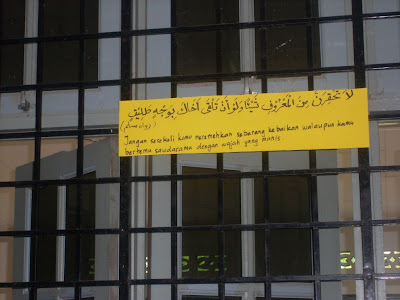 لا تحقرن من المعروف شيئا ولو أن تلقى أخاك بوجه طليق
(رواه مسلم)
Jangan sesekali kamu meremehkan sebarang kebaikan walaupun kamu
bertemu saudaramu dengan wajah yang manis